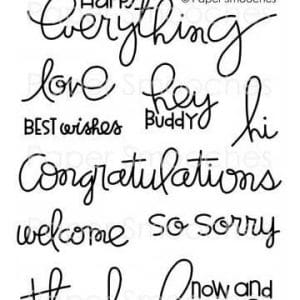 HAPPY
© Paper Smooches
everything
love
hey
BUDDY
BEST wishes
hi
Congratulations
welcome
so sorry
now and